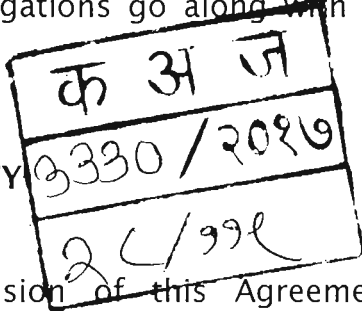 gations go along with
क अ ज
Y ३३३०/२०१७
२८/११९
sion of this Agreeme